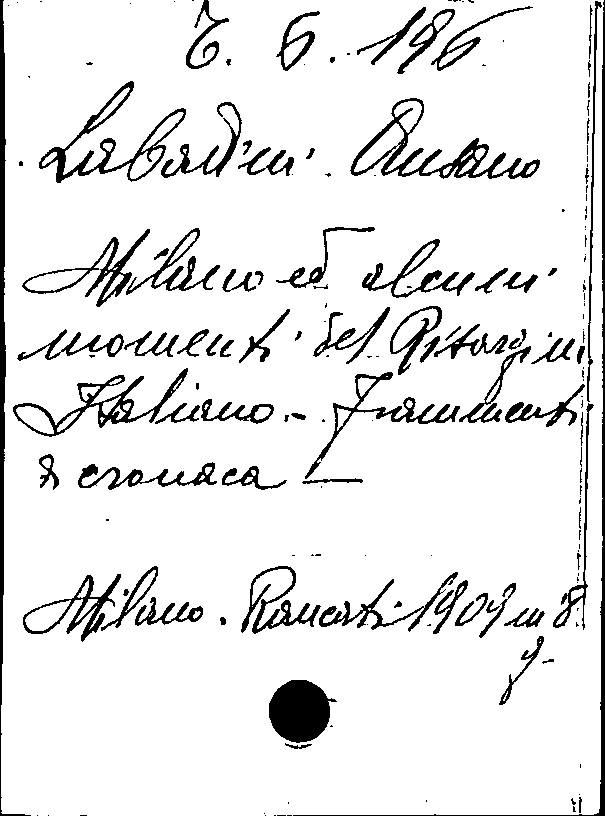 6. 5. 196
Labadini Ausano
Milano ed alcuni
momenti del Risorgim.
Italiano. - Frammenti
di cronaca —
Milano. Rancati 1909 in 8